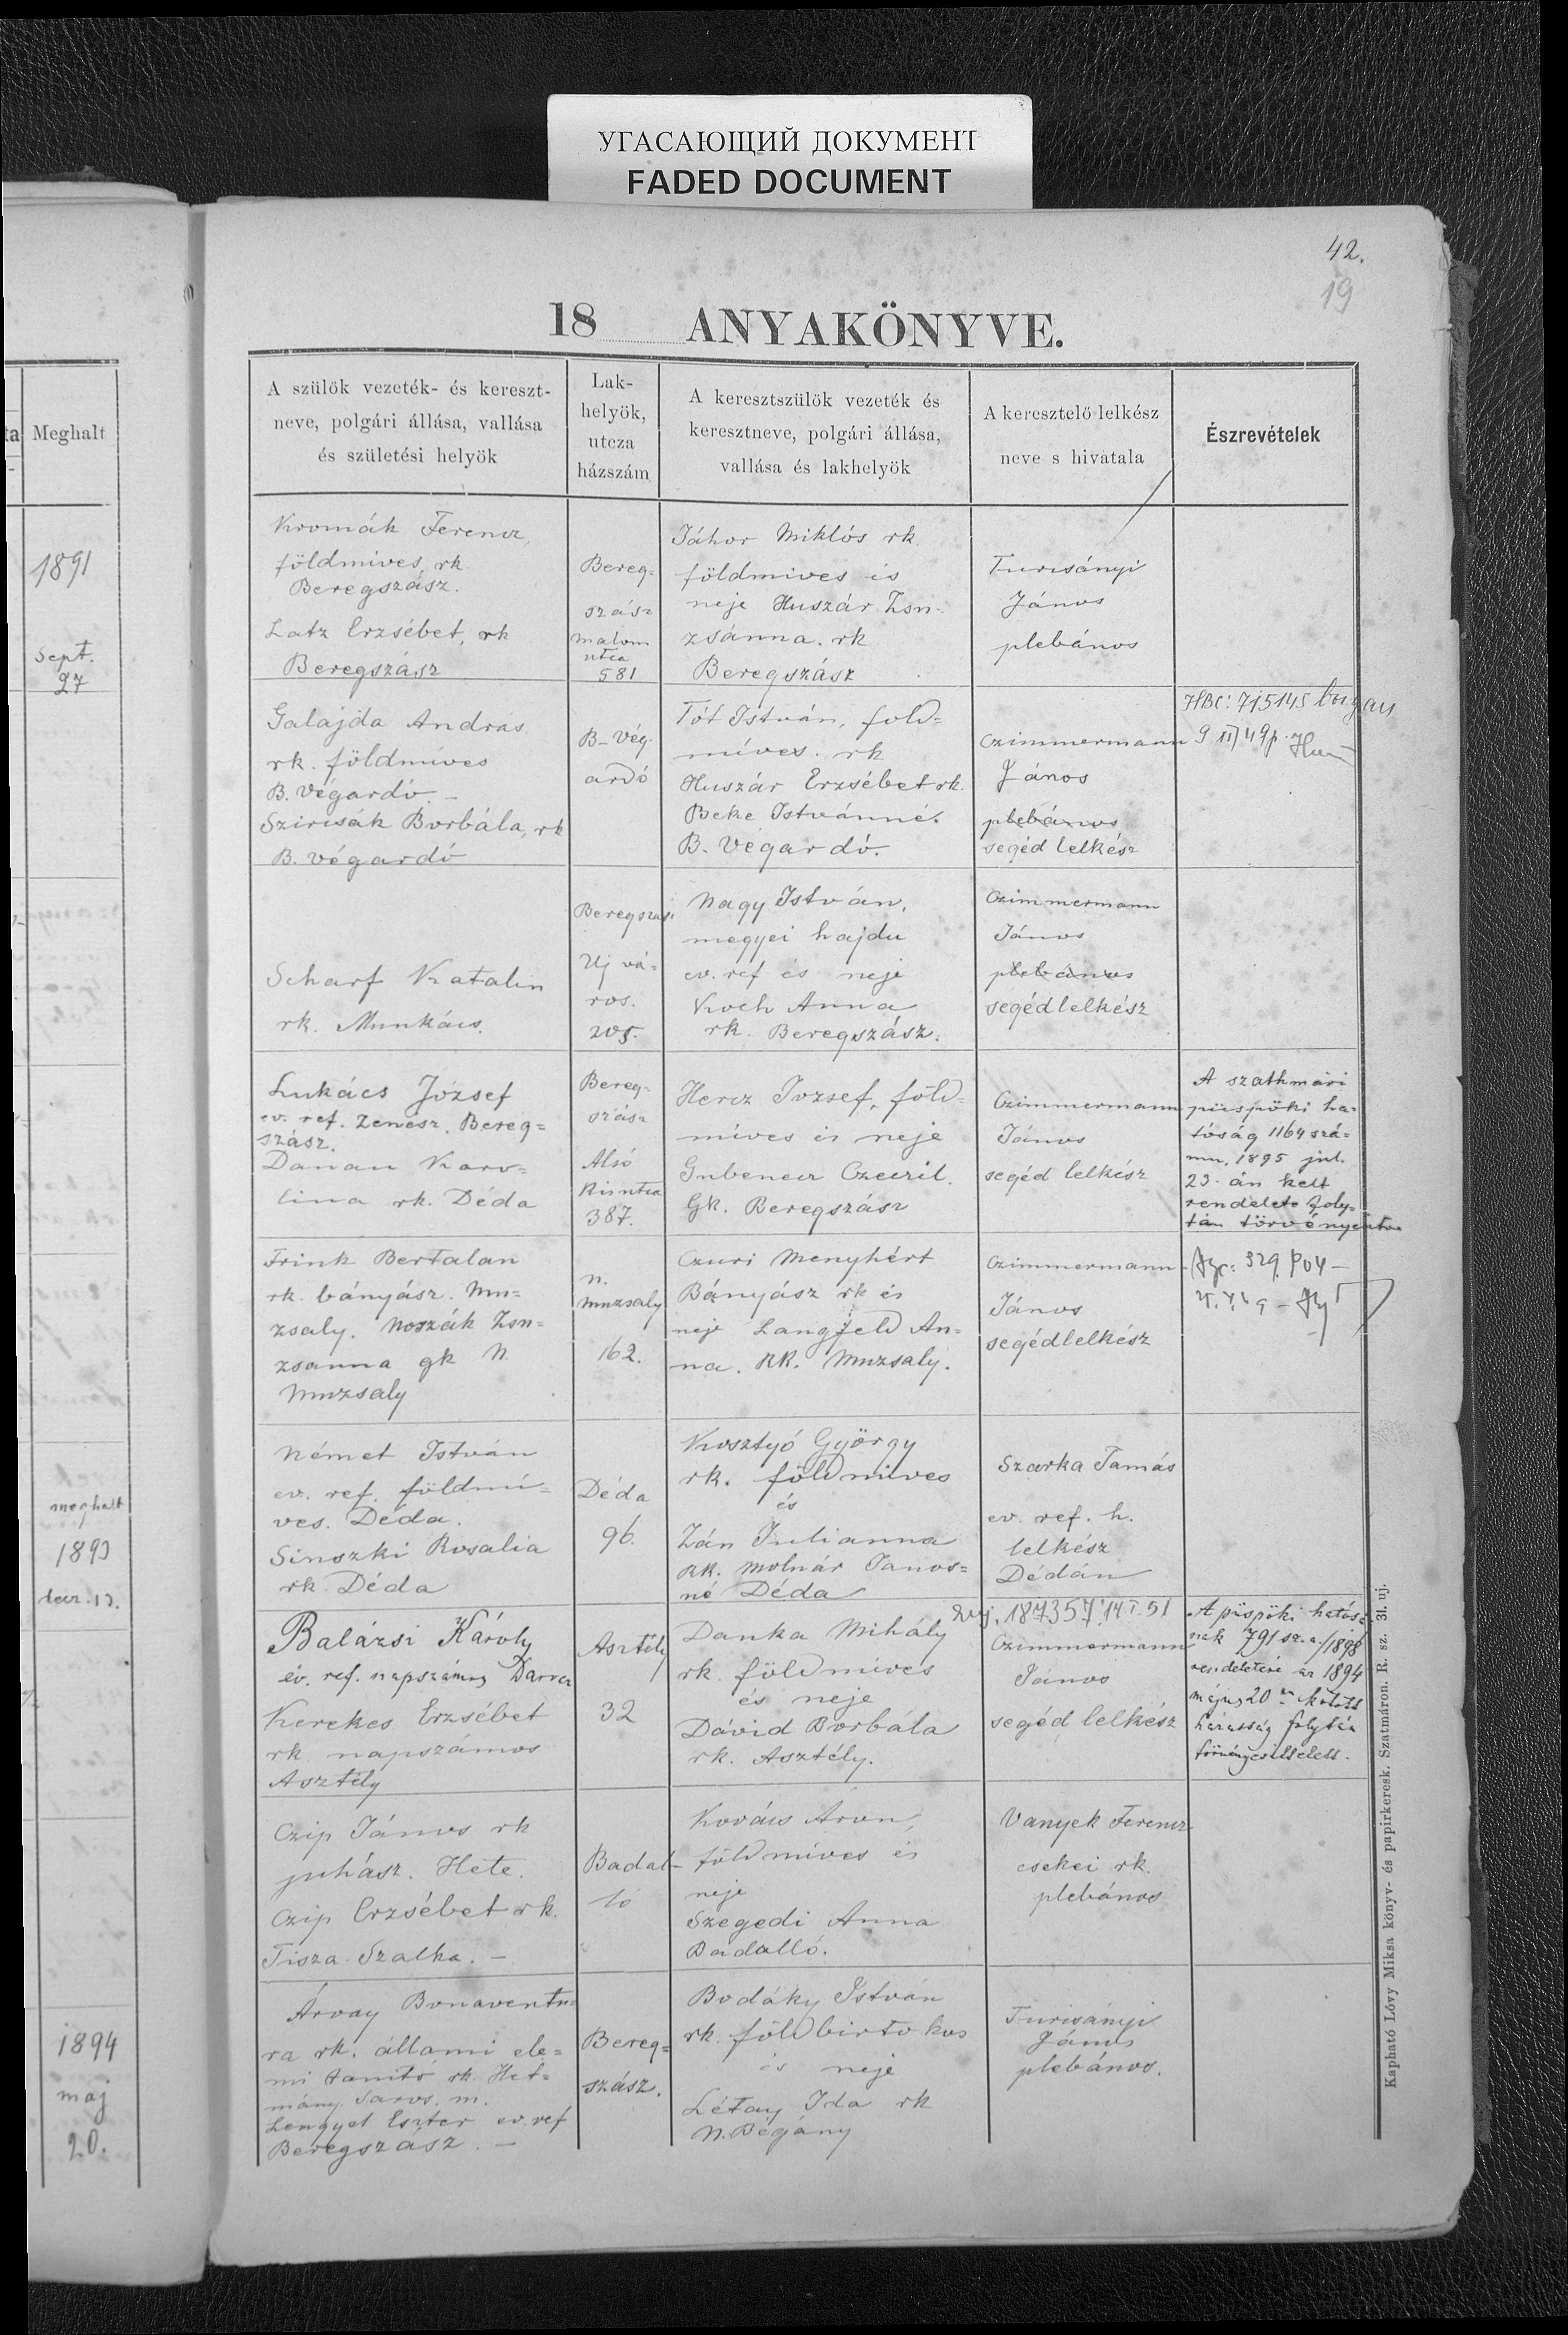 УГАСАЮЩИЙ ДОКУМЕНТ
FADED DOCUMENT
42.
19
18 ANYAKÖNYVE.
ta
Meghalt
1891
sept.
27
meghalt
1893
1894
maj
20.
A szülők vezeték- és kereszt-
neve, polgári állása, vallása
és születési helyök
Lak-
helyök,
utcza
házszám
A keresztszülők vezeték és
keresztneve, polgári állása,
vallása és lakhelyök
A keresztelő lelkész
neve s hivatala
Észrevételek
Kromák Ferencz,
földmives, rk.
Beregszász.
Latz Erzsébet, rk
Beregszász
Bereg-
szász
malom
utca
581
Jáhor Miklós rk.
földmives és
neje Huszár Zsu-
zsánna. rk
Beregszász
Turcsányi
János
plebános
Galajda Andras
rk. földmíves
B. Végardó. –
Szircsák Borbála, rk
B. végardó
B-Vég-
ardó
Tót István, föld-
míves. rk
Huszár Erzsébet rk.
Beke Istvánné.
B. Végardó.
Czimmermann
János
plebános
segéd lelkész
Scharf Katalin
rk. Munkács.
Beregszász
Uj vá-
ros.
205.
Nagy István,
megyei hajdu
ev. ref és neje
Koch Anna
rk. Beregszász.
Czimmermann
János
plebános
segédlelkész
Lukács József
ev. ref. Zenész. Bereg-
szász.
Danau Karo-
lina rk. Déda
Bereg-
szász
Alsó
Kisutca
387.
Hercz József, föld-
míves és neje
Gk. Beregszász
Czimmermann
János
segéd lelkész
A szathmári
püspöki ha-
tóság 1164 szá-
mu, 1895 jul.
23-án kelt
rendelete foly-
tán törvényesitve
Frink Bertalan
rk. bányász. Mu-
zsaly. Noszák Zsu-
zsanna gk N.
Muzsaly
N.
Muzsaly
162.
Czuri Menyhért
Bányász rk és
neje Langfeld An-
na. RK. Muzsaly.
Czimmermann
János
segédlelkész
Német István
ev. ref. földmí-
ves. Déda.
Sinszki Rosalia
rk. Déda
Déda
96.
Kosztyó György
rk. földmíves
és
Zán Julianna
RK. Molnár Janos-
né Déda
Szarka Tamás
ev. ref. h.
lelkész
Dédán
Balázsi Károly
ev. ref. napszámos
Kerekes Erzsébet
rk. napszámos
Asztély
Asztély
32
Danka Mihály
rk. földmíves
és neje
Dávid Borbála
rk. Asztély.
187357 14 I. 51
Czimmermann
János
segéd lelkész
A püspöki hatóság-
nak 791 sz. a./1898
rendeletére az 1894
május 20-án kötött
házasság folytán
törvényesittetett.
Czip János rk
juhász. Hete.
Czip Erzsébet rk.
Tisza-Szalka. –
Badal-
ló
Kovács Áron,
földmíves és
neje
Szegedi Anna
Badalló.
Vanyek Ferencz
csekei rk.
plebános
Árvay Bonaventu-
ra rk. állami ele-
mi tanító rk. Het-
mány. Saros. m.
Lengyel Eszter ev. ref
Beregszász. –
Bereg-
szász.
Bodáky István
rk. földbirtokos
és neje
Létay Ida rk
N. Bégány
Turcsányi
János
plebános.
Kapható Lővy Miksa könyv- és papirkeresk. Szatmáron. R. sz. 31. uj.